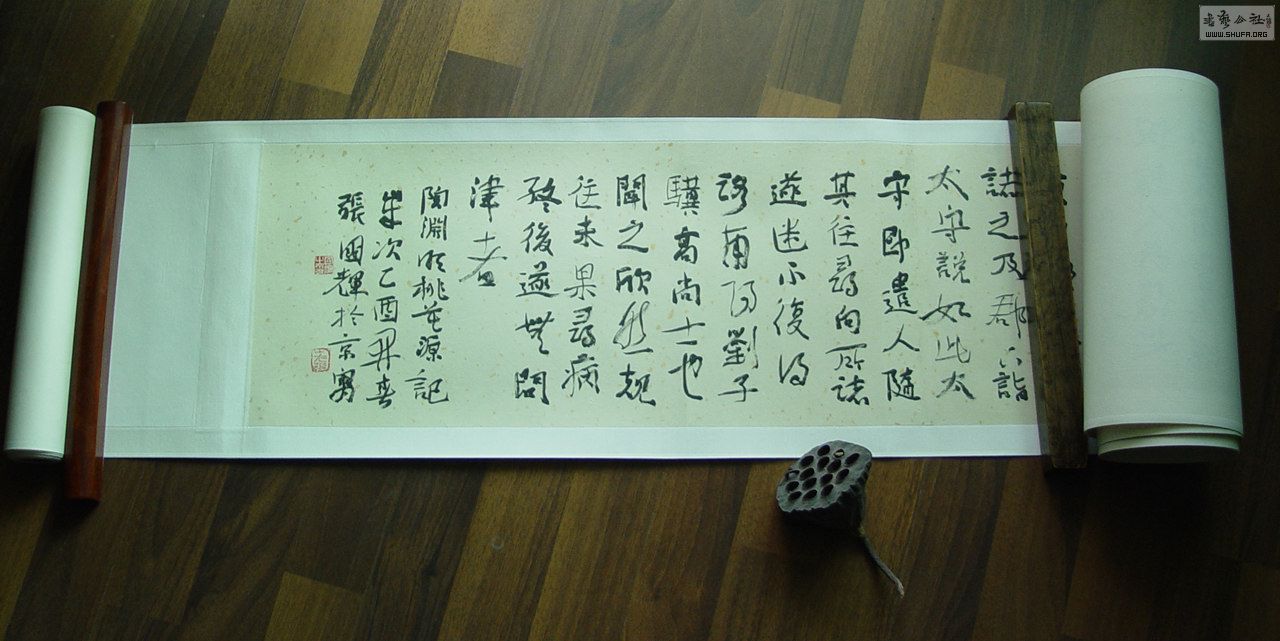 誌之及郡下詣
太守說如此太
守即遣人隨
其往尋向所誌
遂迷不復得
路南陽劉子
驥高尚士也
聞之欣然規
往未果尋病
終後遂無問
津者
陶淵明桃花源記
歲次乙酉春
張國輝於京寓
書藝公社
WWW.SHUFA.ORG